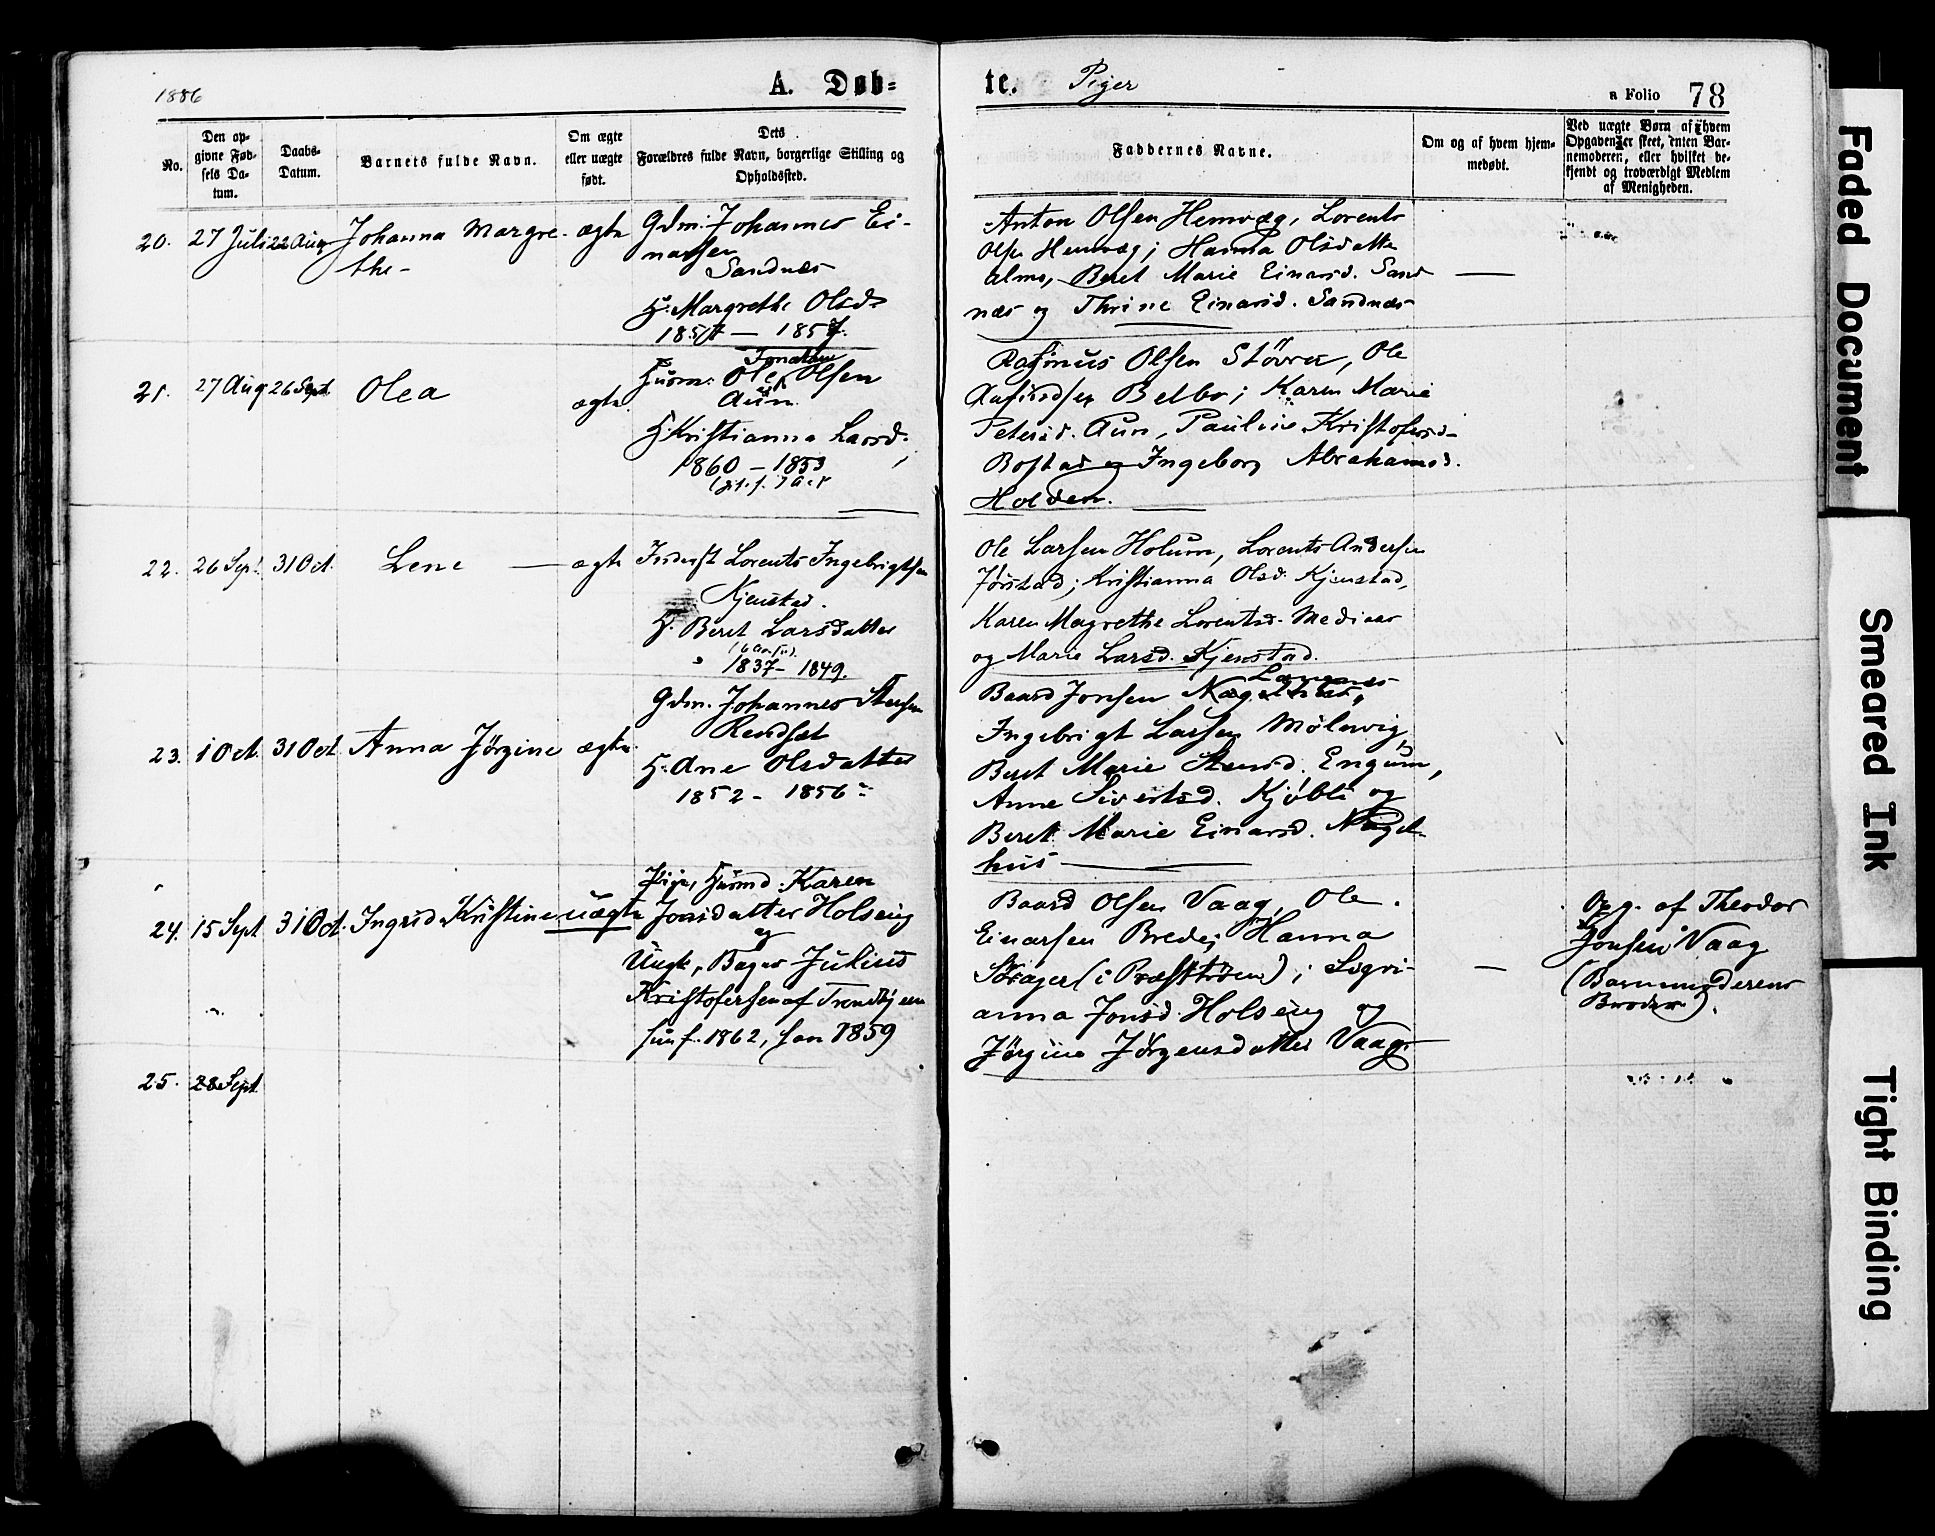 1886
A. Døb=
te.
Piger
a Folio 78
No.
Den op-
givne Fød-
sels Da-
tum.
Daabs-
Datum.
Barnets fulde Navn.
Om ægte
eller uægte
født.
Dets
Forældres fulde Navn, borgerlige Stilling og
Opholdssted.
Faddernes Navne.
Om og af hvem hjem-
medøbt.
Ved uægte Børn af hvem
Opgaven er skeet, enten Bar-
nemoderen, eller hvilket be-
kjendt og troværdigt Medlem
af Menigheden.
20. 27 Juli 22 Aug Johanna Margre-
the-
ægte
Gdm. Johannes Ei-
narsen
Sandnæs
H. Margrethe Olsd.
1857 — 1857.
Anton Olsen Hemvæg, Lorents
Olsen Hemvæg; Hanna Olsdatter
Beret Marie Einarsd. Sand
næs og Thrine Einarsd. Sandnæs
—
21. 27 Aug 26 Sept Olea
ægte
Husm. Ole Olsen
Aun.
H. Kristianna Larsd.
1860 — 1853
Olsen Støvre, Ole
Belbo; Karen Marie
Petersd. Aun, Pauline Kristofersd.
Bostad og Ingeborg Abrahamsd.
Holden.
22. 26 Sept. 31 Oct. Lene — ægte
Inderst Lorents Ingebrigtsen
Kjenstad.
H. Beret Larsdatter
1837 - 1849.
Ole Larsen Holum, Lorents Andersen
Jørstad; Kristianna Olsd. Kjenstad,
Karen Magrethe Lorentsd. Mediaas
og Marie Larsd. Kjenstad.
23. 1 Oct. 31 Oct. Anna Jørgine ægte.
Gdm. Johannes Stensen
Rendset
H. Ane Olsdatter
1852 - 1856
Baard Jonsen
Ingebrigt Larsen Mölnvig,
Beret Marie Stensd. Engum,
Anne Sivertsd. Kjøbli og
Beret Marie Einarsd. Nagel-
hus —
24. 15 Sept 31 Oct. Ingrid Kristine uægte
Pige, Husmd. Karen
Jonsdatter Holseng
og
Ungk, Bager Julius
Kristofersen af Trondhjem
hun f. 1862, han 1859
Baard Olsen Vaag, Ole
Einarsen Brede; Hanna
Strager (i Præsttrøen); Sigri-
anna Jonsd. Holseng og
Jørgine Jørgensdatter Vaag.
—
Opg. af Theodor
Jonsen Vaag
(Barnemoderens
Broder).
25. 28 Sept
Faded Document
Smeared Ink
Tight Binding